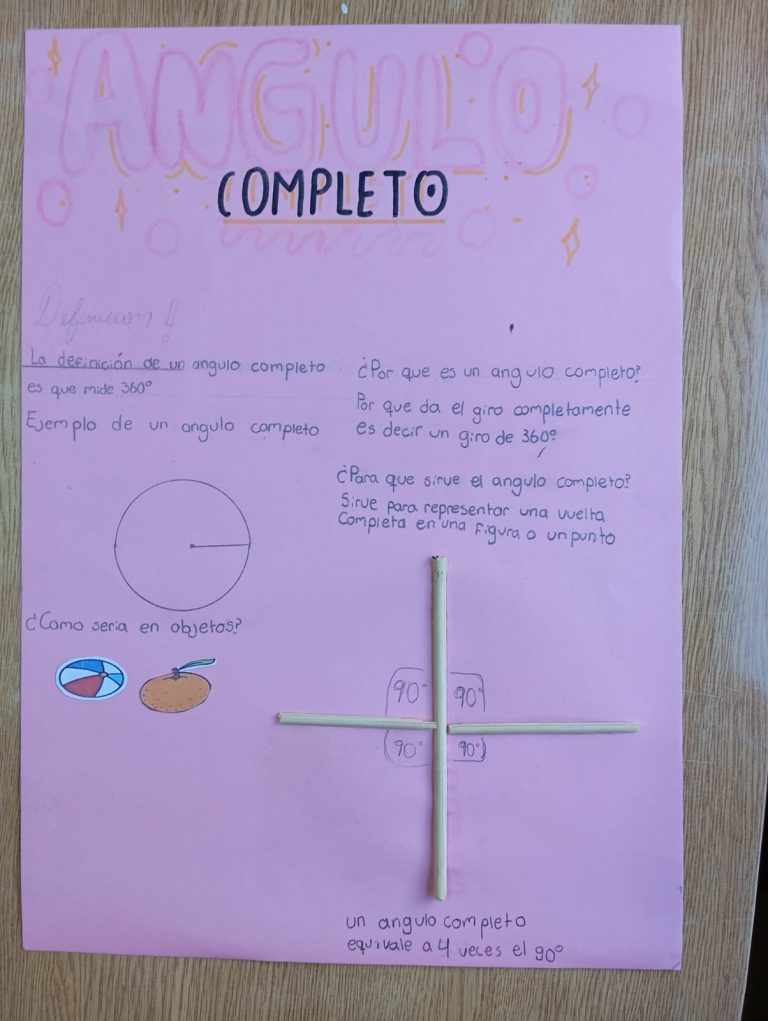 ANGULO
COMPLETO
Definicion!!
La definición de un angulo completo
es que mide 360°
Ejemplo de un angulo completo
¿Como seria en objetos?
¿Por que es un angulo completo?
Por que da el giro completamente
es decir un giro de 360°
¿Para que sirve el angulo completo?
Sirve para representar una vuelta
Completa en una figura o un punto
90° 90°
90° 90°
un angulo completo
equivale a 4 veces el 90°